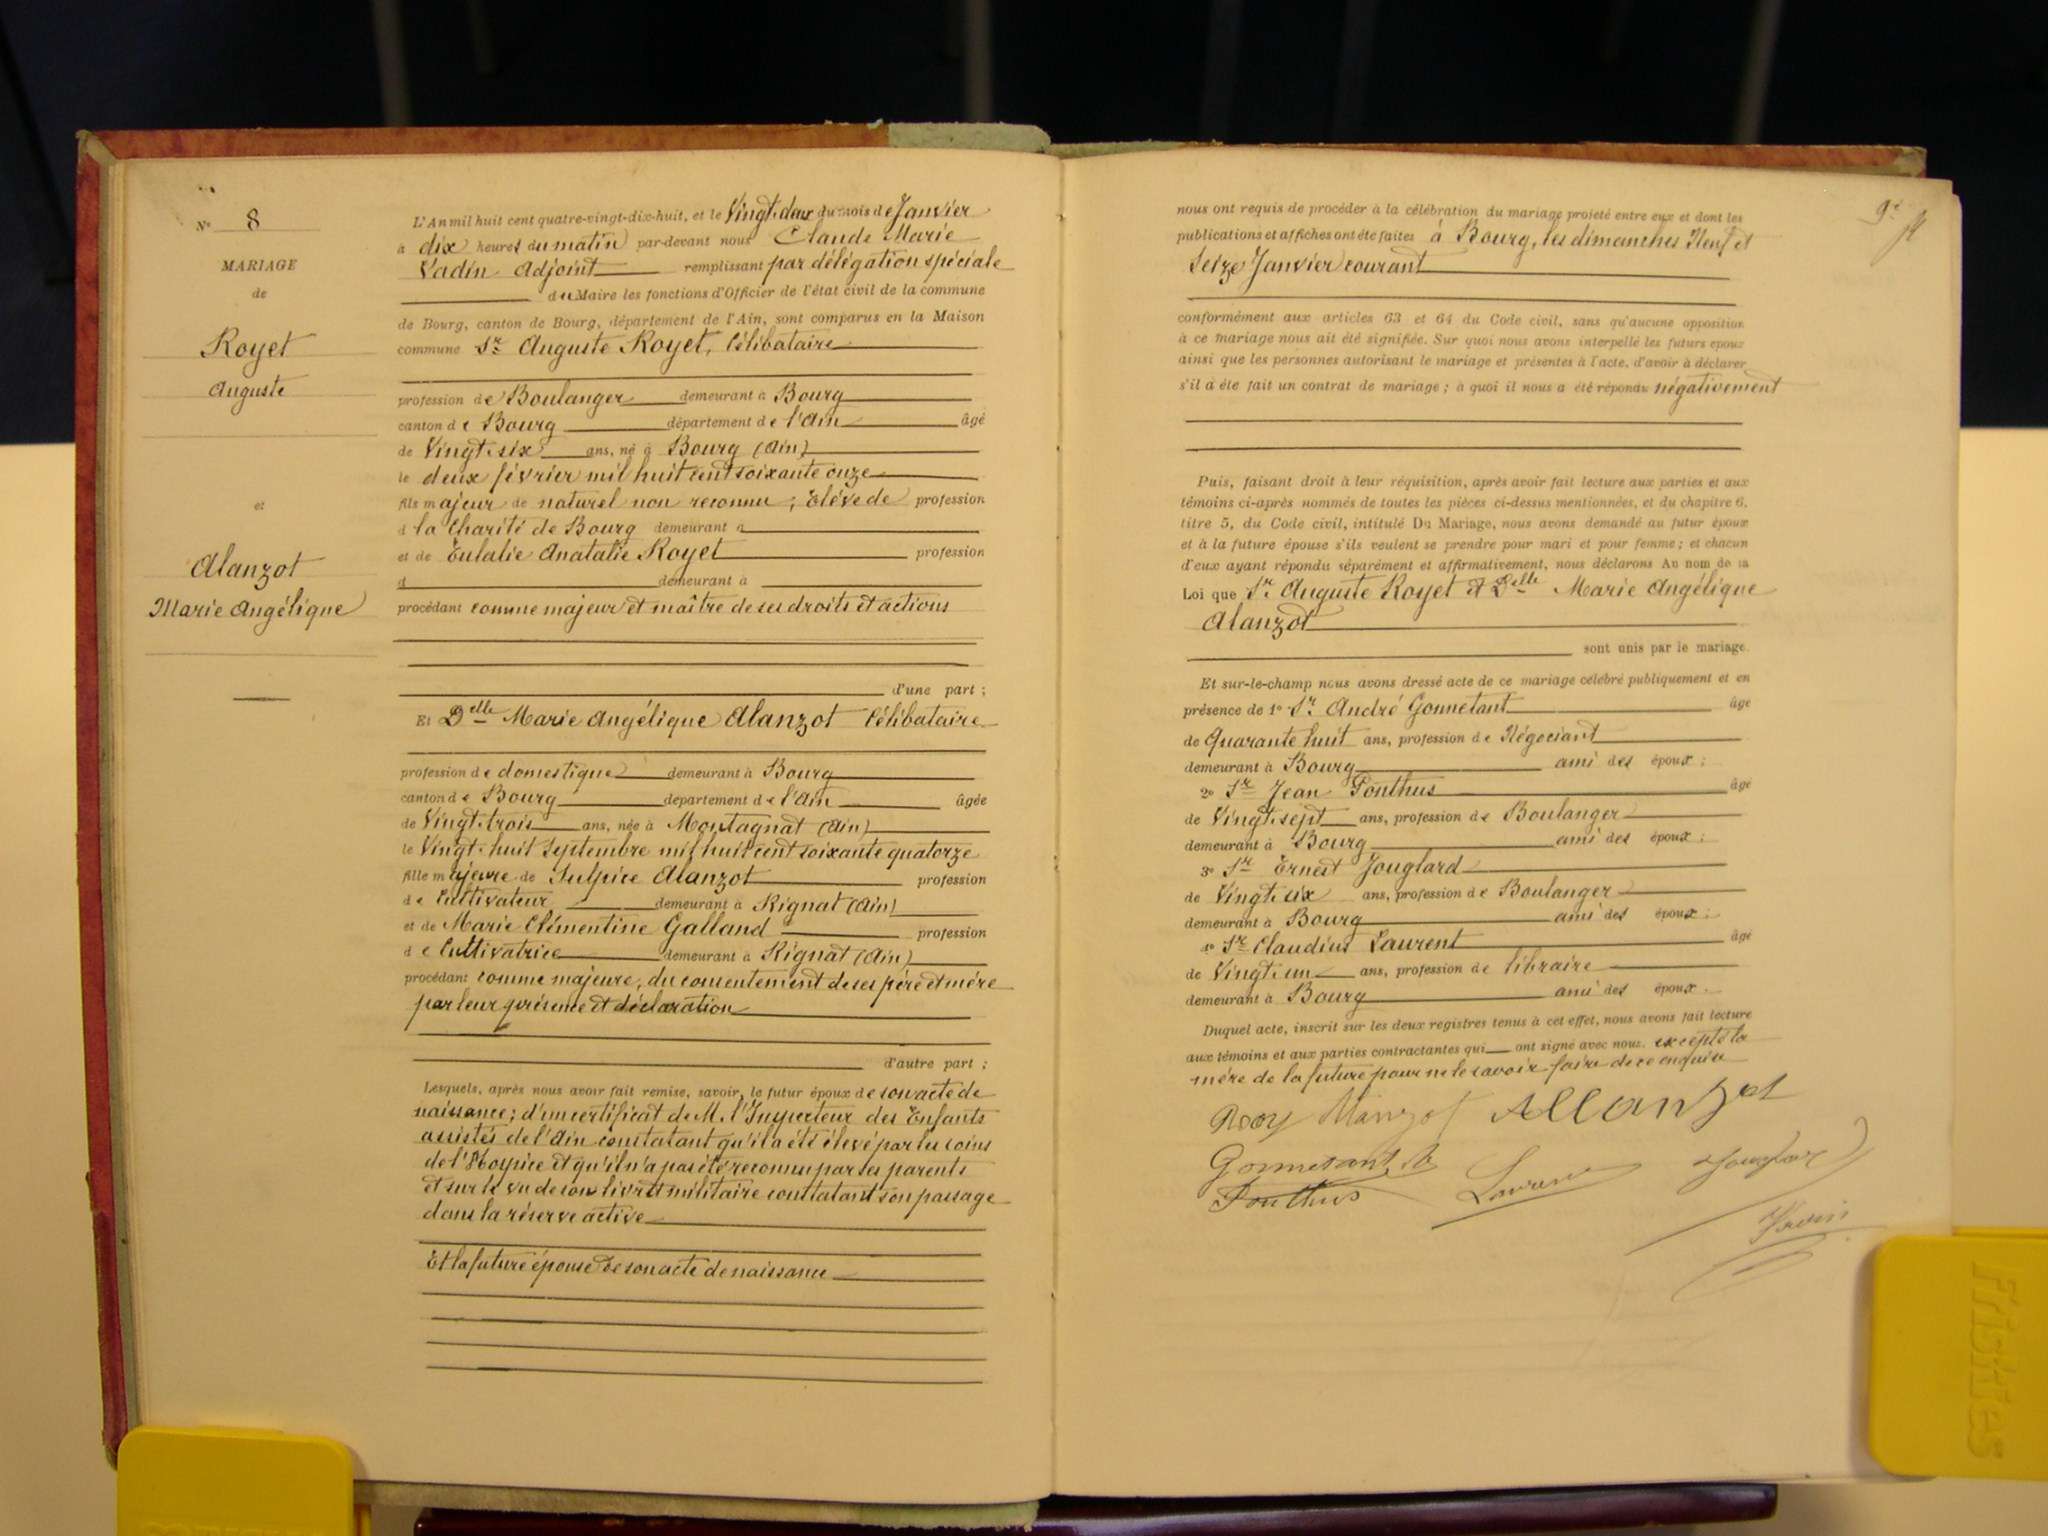 N° 8
MARIAGE
de
Royet
Auguste
et
Alanzot
Marie Angélique
L'An mil huit cent quatre-vingt-dix-huit, et le Vingt deux du mois de Janvier
à dix heures du matin par-devant nous Claude Marie
Vadin Adjoint remplissant par délégation spéciale
du Maire les fonctions d'Officier de l'état civil de la commune
de Bourg, canton de Bourg, département de l'Ain, sont comparus en la Maison
commune Sr Auguste Royet, Célibataire
profession de Boulanger demeurant à Bourg
canton de Bourg département de l'Ain âgé
de Vingt six ans, né à Bourg (Ain)
le deux février mil huit cent soixante onze
fils majeur de naturel non reconnu ; Elève de profession
d la Charité de Bourg demeurant à
et de Eulalie Anatalie Royet profession
d demeurant à
procédant comme majeur et maître de ses droits et actions
d'une part ;
Et Delle Marie Angélique Alanzot Célibataire
profession de domestique demeurant à Bourg
canton de Bourg département de l'Ain âgée
de Vingt trois ans, née à Montagnat (Ain)
le Vingt huit Septembre mil huit cent soixante quatorze
fille majeure de Sulpice Alanzot profession
de Cultivateur demeurant à Rignat (Ain)
et de Marie Clémentine Galland profession
de Cultivatrice demeurant à Rignat (Ain)
procédant comme majeure, du consentement de ses père et mère
par leur présence et déclaration
d'autre part ;
Lesquels, après nous avoir fait remise, savoir, le futur époux de son acte de
naissance ; d'un certificat de M. l'Inspecteur des Enfants
assistés de l'Ain constatant qu'il a été élevé par les soins
de l'Hospice et qu'il n'a pas été reconnu par ses parents
et sur le vu de son livret militaire constatant son passage
dans la réserve active
Et la future épouse de son acte de naissance
9e
nous ont requis de procéder à la célébration du mariage projeté entre eux et dont les
publications et affiches ont été faites à Bourg, les dimanches Neuf et
Seize Janvier courant
conformément aux articles 63 et 64 du Code civil, sans qu'aucune opposition
à ce mariage nous ait été signifiée. Sur quoi nous avons interpellé les futurs époux
ainsi que les personnes autorisant le mariage et présentes à l'acte, d'avoir à déclarer
s'il a été fait un contrat de mariage ; à quoi il nous a été répondu négativement
Puis, faisant droit à leur réquisition, après avoir fait lecture aux parties et aux
témoins ci-après nommés de toutes les pièces ci-dessus mentionnées, et du chapitre 6,
titre 5, du Code civil, intitulé Du Mariage, nous avons demandé au futur époux
et à la future épouse s'ils veulent se prendre pour mari et pour femme ; et chacun
d'eux ayant répondu séparément et affirmativement, nous déclarons Au nom de la
Loi que Sr Auguste Royet et Delle Marie Angélique
Alanzot
sont unis par le mariage.
Et sur-le-champ nous avons dressé acte de ce mariage célébré publiquement et en
présence de 1° Sr André Gonnetant âgé
de Quarante huit ans, profession de Négociant
demeurant à Bourg ami des époux ;
2° Sr Jean Ponthus âgé
de Vingt sept ans, profession de Boulanger
demeurant à Bourg ami des époux ;
3° Sr Ernest Jouglard
de Vingt six ans, profession de Boulanger
demeurant à Bourg ami des époux ;
4° Sr Claudius Laurent âgé
de Vingt un ans, profession de libraire
demeurant à Bourg ami des époux.
Duquel acte, inscrit sur les deux registres tenus à cet effet, nous avons fait lecture
aux témoins et aux parties contractantes qui ont signé avec nous. excepté la
mère de la future pour ne le savoir faire de ce enquise
Allanzot
Gonnetant
Laurent
Jouglar
Ponthus
Vadin
Friskies